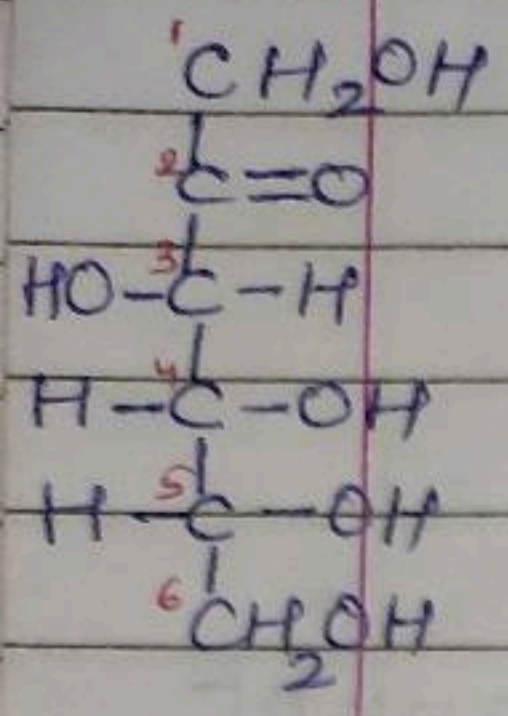 1
CH2OH
2
C=O
3
HO-C-H
4
H-C-OH
5
H-C-OH
6
CH2OH